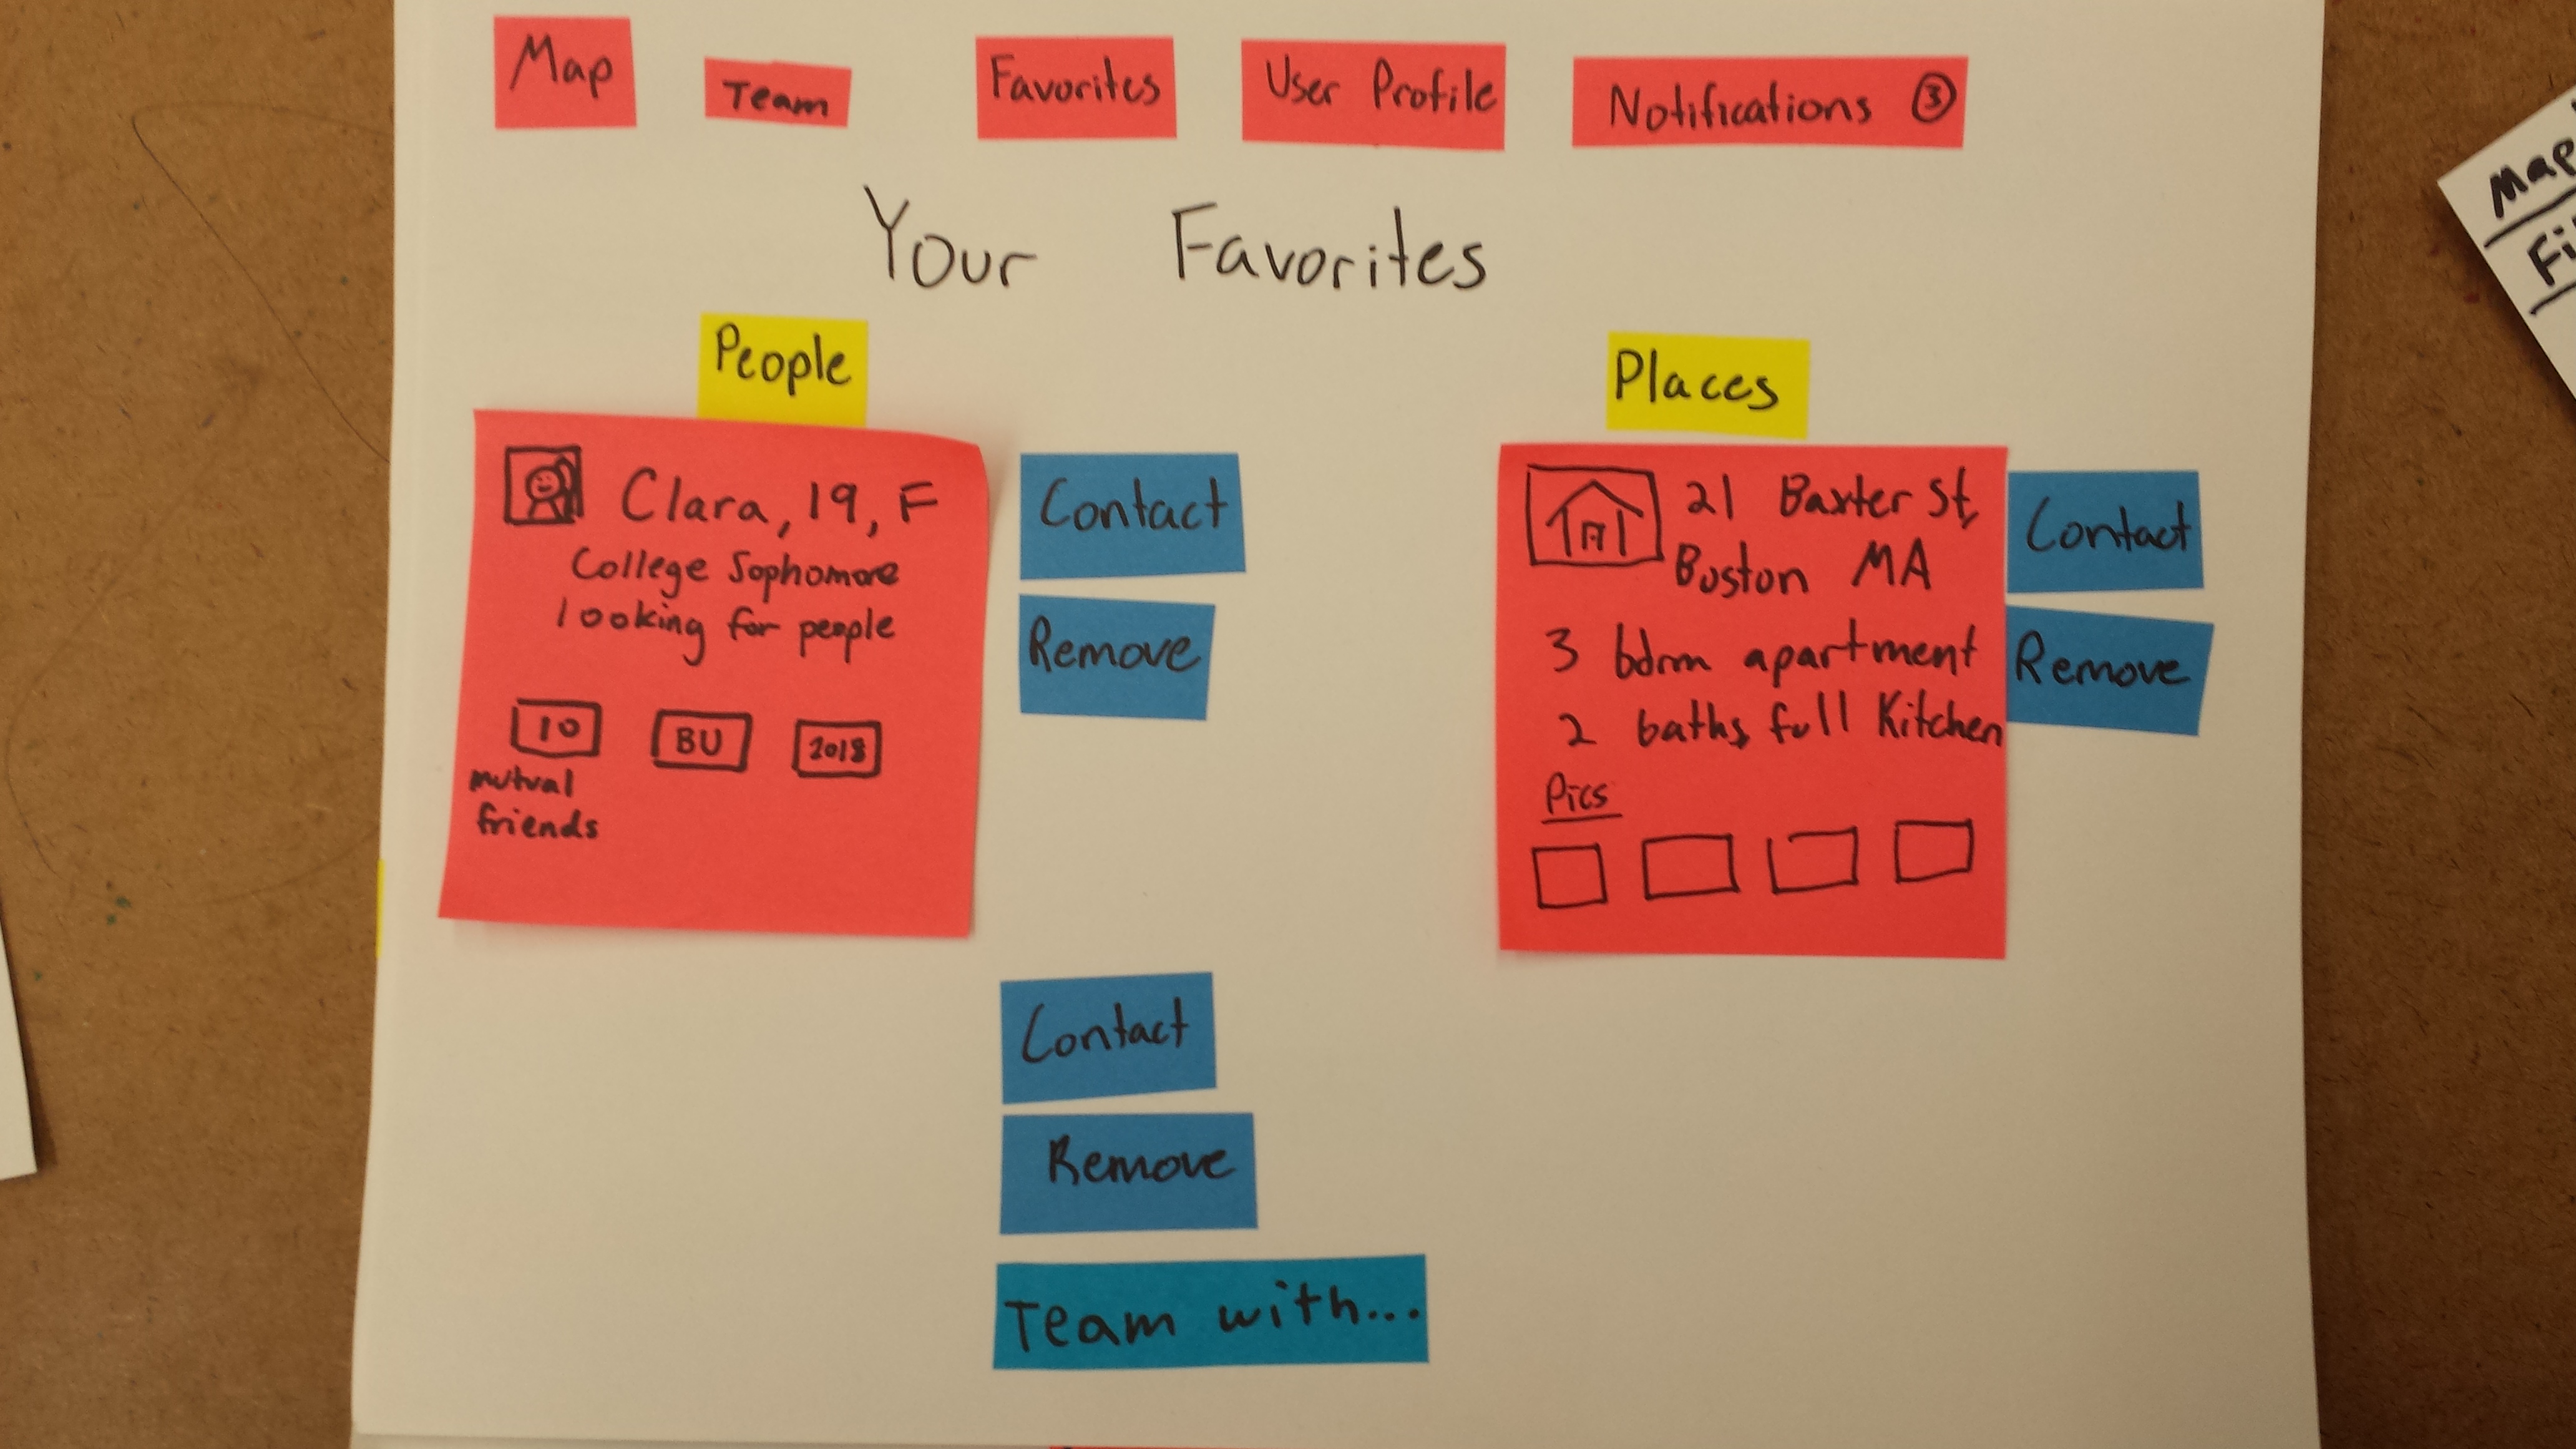 Map
Team
Favorites
User Profile
Notifications 3
Your Favorites
People
Clara, 19, F
College Sophomore
looking for people
10
BU
2018
mutual
friends
Contact
Remove
Places
21 Baxter St,
Boston MA
3 bdrm apartment
2 baths, full Kitchen
Pics
Contact
Remove
Contact
Remove
Team with...
Map